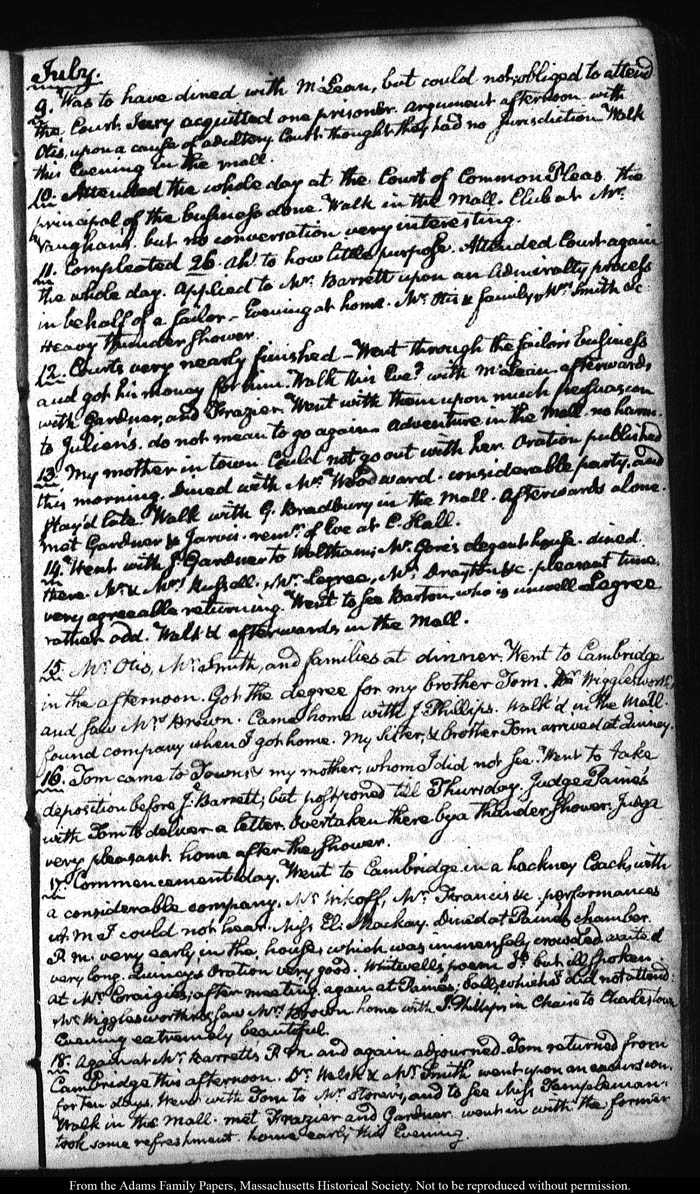 July.
9. Was to have dined with McLean, but could not, obliged to attend
the Court. Jury acquitted one prisoner. Argument afternoon with
Otis, upon a cause of adultery. Court thought they had no jurisdiction. Walk
this Evening in the mall.
10. Attended the whole day at the Court of Common Pleas. The
principal of the business done. Walk in the Mall. Club at Mr.
Vaughan's. but no conversation very interesting.
11. Compleated 26. ah! to how little purpose. Attended Court again
the whole day. Applied to Mr. Barrett upon an Admiralty process
in behalf of a sailor — Evening at home. Mr. Otis & family, Mrs. Smith &c
Heavy thunder shower.
12. Courts very nearly finished — Went through the sailor's business
and got his money for him. Walk this Eve? with McLean afterwards
with Gardner, and Frazier. Went with them upon much persuasion
to Julien's. do not mean to go again. Adventure in the Mall. no harm.
13. My mother in town. Could not go out with her. Oration published
this morning. Dined with Mrs. Woodward. considerable party, and
stay'd late. Walk with G. Bradbury in the Mall. Afterwards alone.
met Gardner & Jarvis. of Eve at C. Hall.
14. Went with J. Gardner to Waltham; Mr. Gore's elegant house. dined
there. Mr. & Mrs. Russell. Mr. Legree, Mr. Drayton &c. pleasant time.
very agreeable returning. Went to see Barton, who is unwell. Legree
rather odd. Walk'd afterwards in the Mall.
15. Mr. Otis, Mr. Smith, and families at dinner. Went to Cambridge
in the afternoon. Got the degree for my brother Tom. Wigglesworth,
and saw Mrs. Brown. Came home with J. Phillips. Walk'd in the Mall.
found company when I got home. My sister, & brother Tom arrived at Quincy.
16. Tom came to Town, & my mother, whom I did not see. Went to take
deposition before J. Barrett; but postponed till Thursday. Judge Paine's
with Tom to deliver a letter. Overtaken there by a thunder shower. Judge
very pleasant. home after the shower.
17. Commencement day. Went to Cambridge in a hackney Coach, with
a considerable company. Mr. Wikoff, Mr. Francis &c. performances
A.M. I could not hear. Miss Eli. Mackay. Dined at Paine's chamber.
P.M. very early in the house, which was immensely crowded. waited
very long. Quincy's Oration very good. Whitwell's poem but ill spoken
at Mr. Craigie's; after meeting. again at Paine's: ball, which I did not attend.
Mr. Wigglesworth's saw Mrs. Brown home with J. Phillips in Chaise to Charlestown
Evening extremely beautiful.
18. Again at Mr. Barrett's P.M. and again adjourned. Tom returned from
Cambridge this afternoon. Dr. Welsh & Mr. Smith, went upon an excursion
for ten days. Went with Tom to Mr. Storer's, and to see Miss Templeman.
Walk in the Mall. met Frazier and Gardner. went in with the former
took some refreshment. home early this Evening.
From the Adams Family Papers, Massachusetts Historical Society. Not to be reproduced without permission.